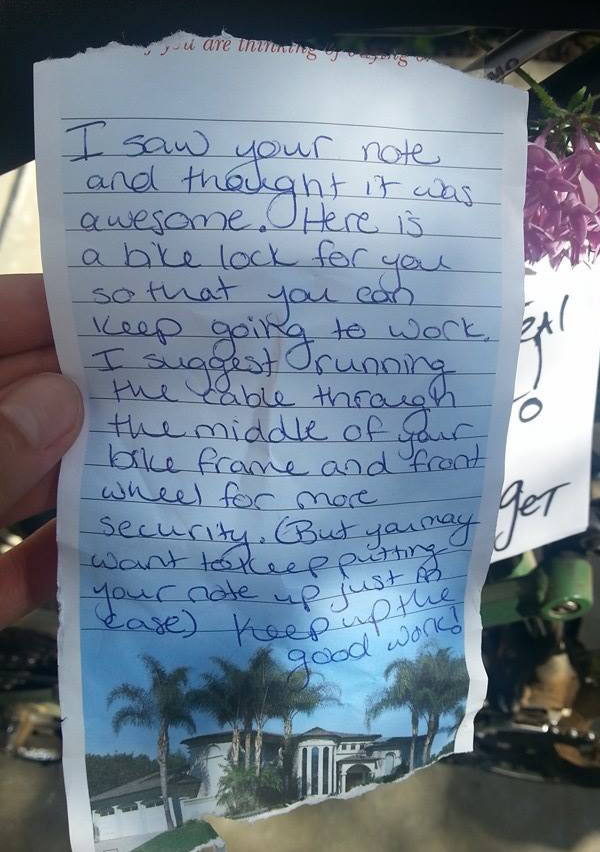 you are thinking of buying or
I saw your note
and thought it was
awesome. Here is
a bike lock for you
so that you can
keep going to work.
I suggest running
the cable through
the middle of your
bike frame and front
wheel for more
security. (But you may
want to keep putting
your note up just in
case) Keep up the
good work!
TO
get